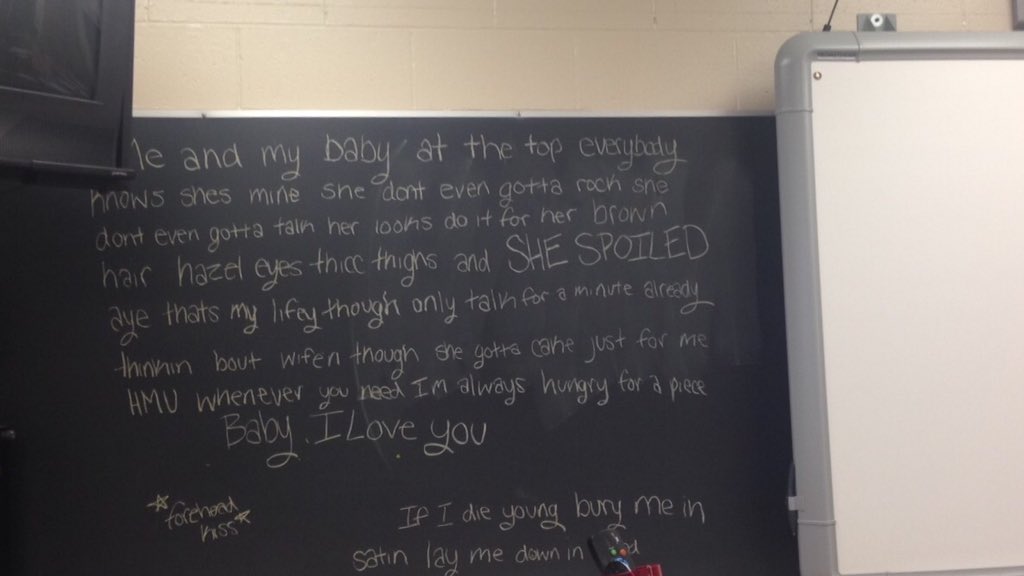 Me and my baby at the top everybody
knows shes mine she dont even gotta rock she
dont even gotta talk her looks do it for her brown
hair hazel eyes thicc thighs and SHE SPOILED
aye thats my lifey though only talk for a minute already
thinkin bout wifen though she gotta cake just for me
HMU whenever you need I'm always hungry for a piece
Baby, I Love you
forehead
kiss
If I die young bury me in
satin lay me down in